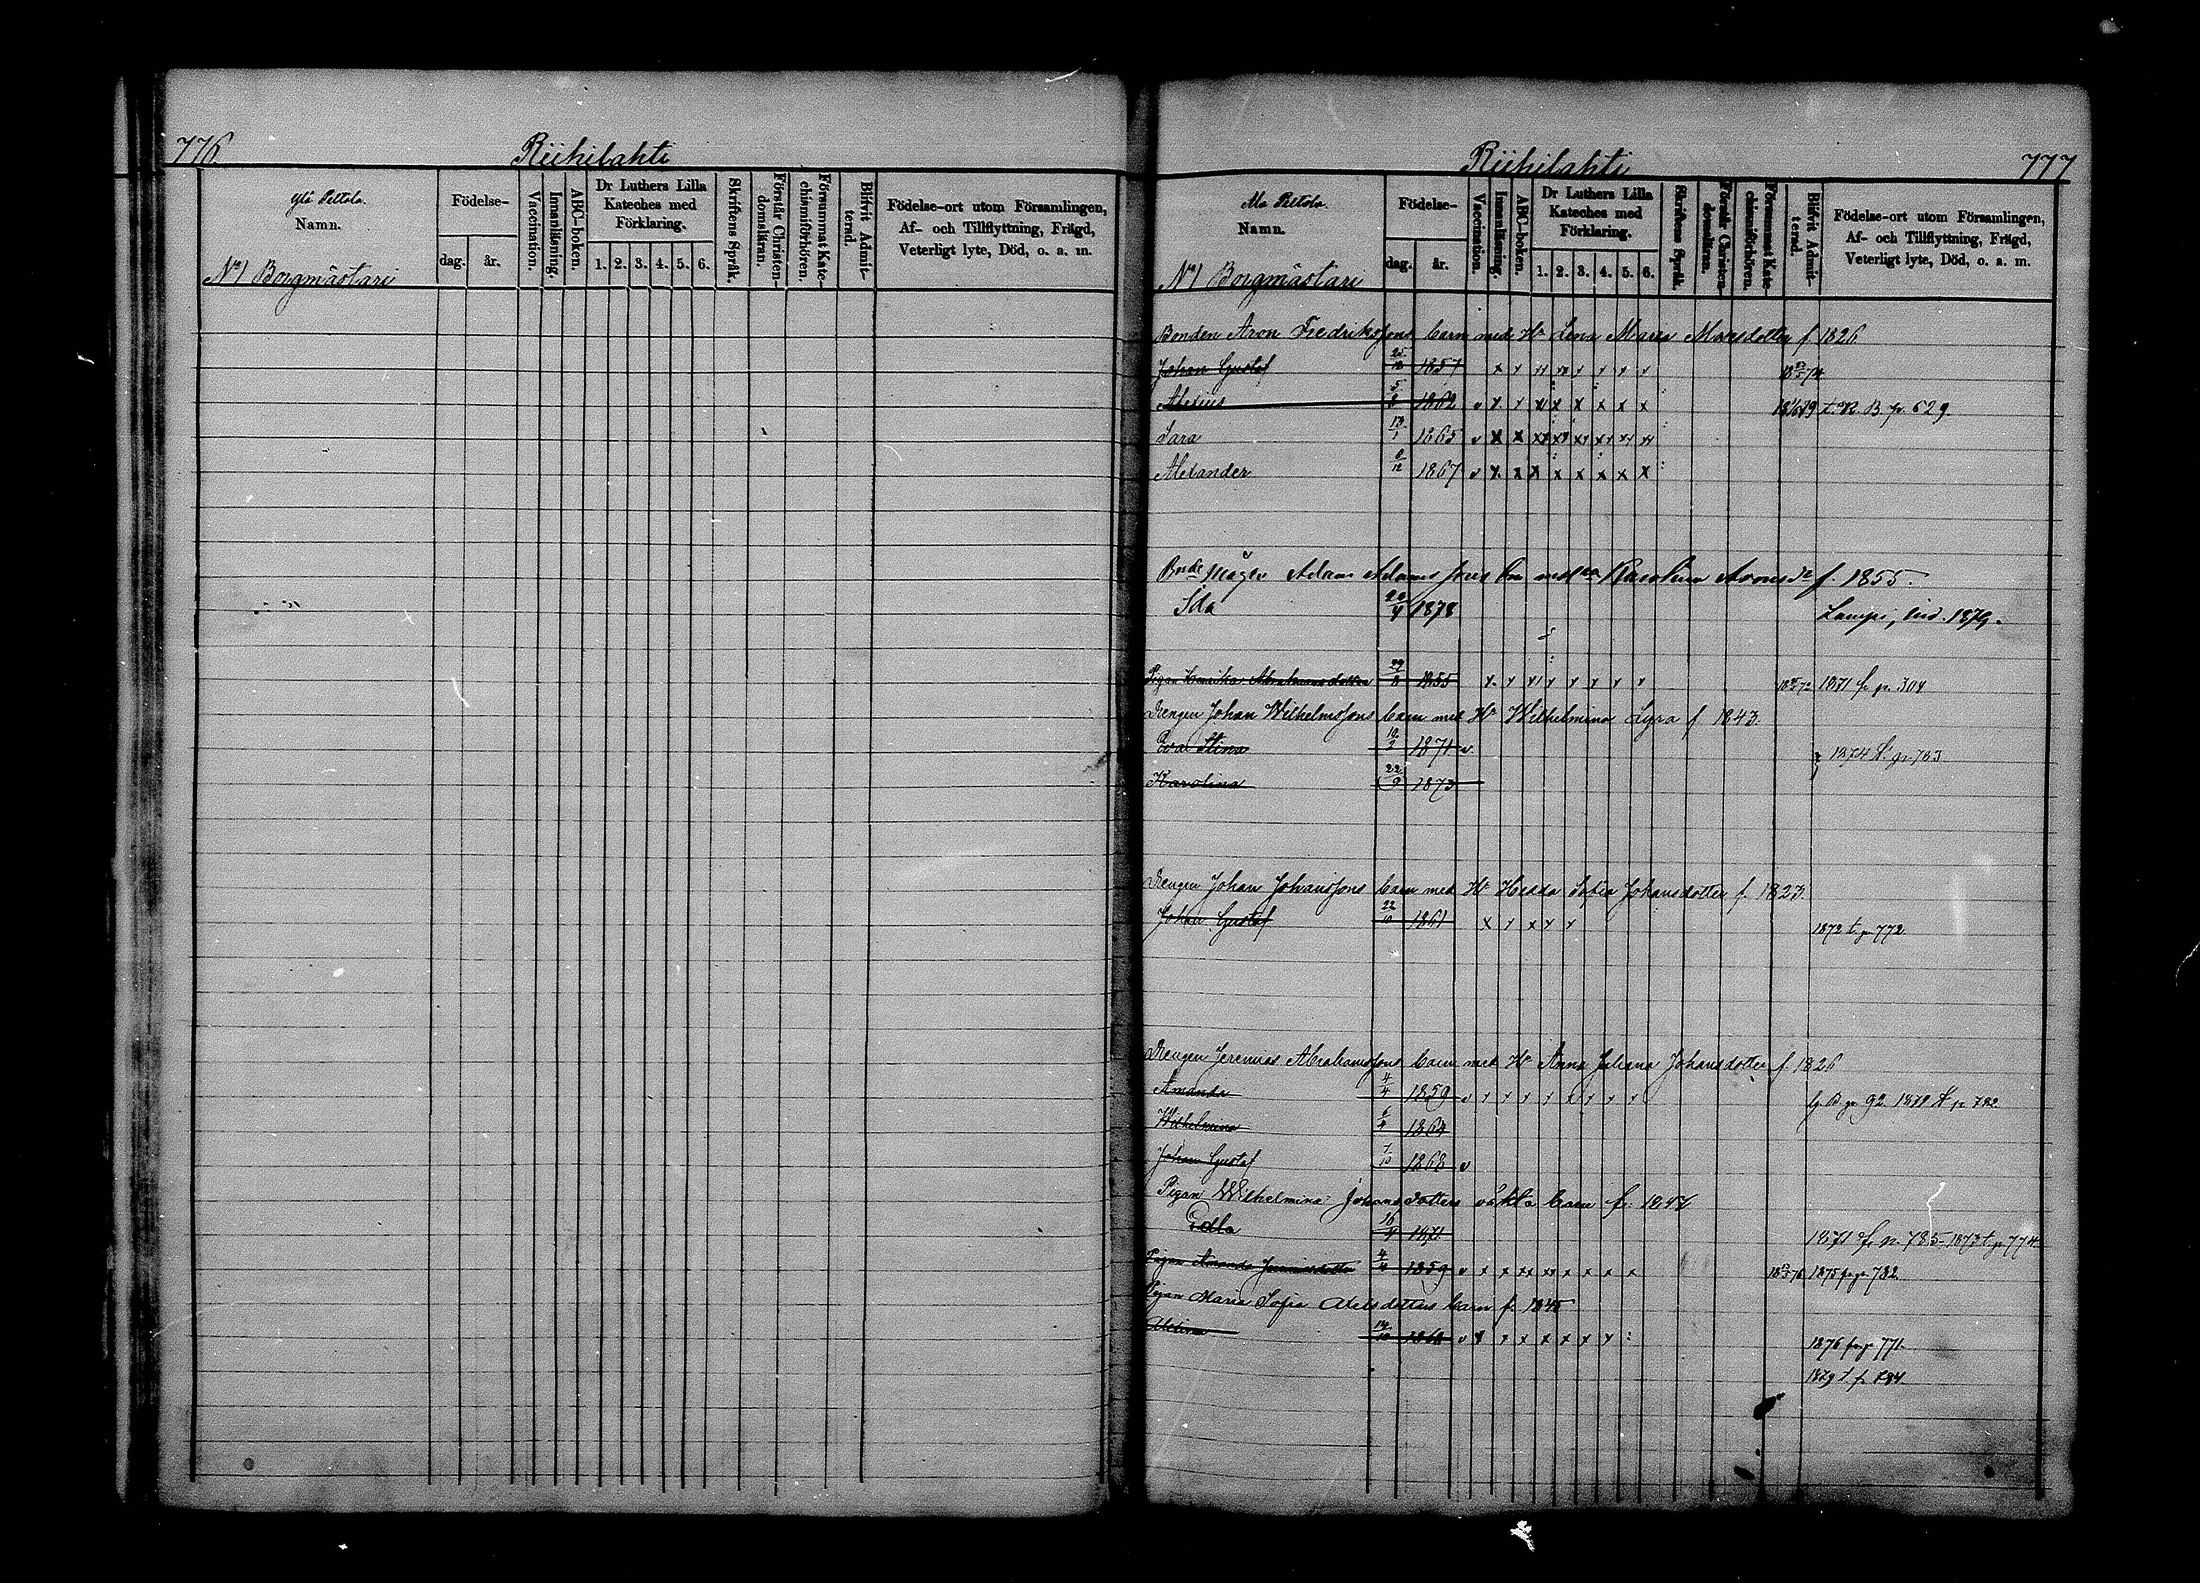 776 Riihilahti
Ylä Peltola.
Namn.
Födelse-
dag. år.
Vaccination.
Innanläsning.
ABC-boken.
Dr Luthers Lilla Kateches med Förklaring.
1. 2. 3. 4. 5. 6.
Skriftens Språk.
Förstår Christendomsläran.
Försummat Katechismiförhören.
Blifvit Admitterad.
Födelse-ort utom Församlingen,
Af- och Tillflyttning, Frägd,
Veterligt lyte, Död, o. a. m.
No 1 Borgmästari
Riihilahti 777
Ala Peltola
Namn.
Födelse-
dag. år.
Vaccination.
Innanläsning.
ABC-boken.
Dr Luthers Lilla Kateches med Förklaring.
1. 2. 3. 4. 5. 6.
Skriftens Språk.
Förstår Christendomsläran.
Försummat Katechismiförhören.
Blifvit Admitterad.
Födelse-ort utom Församlingen,
Af- och Tillflyttning, Frägd,
Veterligt lyte, Död, o. a. m.
No 1 Borgmästari
Bonden Aron Fredrikssons barn med Hu Lena Maria Matsdotter f 1826
Johan Gustaf 1857
Alexius 5/8 1862 v x x x x x x x B p. 629
Sara 13/1 1865 v x x
Alexander 1867 v x x x x x x x x
Bnde Måg Adam Adamssons bn med Karolina Aronsdr f. 1855.
Ida 1878 Lampi, 1879.
Pigan Abrahamsdotter 29/8 1855 1871 fr pg. 304
Drengen Johan Wilhelmssons barn med Hu Wilhelmina Lyra f 1843.
Eva Stina 1871 v. 1874 t. pg. 783
Karolina 22/9 1873
Drengen Johan Johanssons barn med Hu Hedda Sofia Johansdotter f. 1823.
Johan Gustaf 22/10 1861 x x x x x 1872 t. pg 772
Drengen Jeremias Abrahamssons barn med Hu Anna Juliana Johansdotter f. 1826
Amanda 4/4 1859 v B pg 92.
Wilhelmina 1864
Johan Gustaf 7/10 1868 v
Pigan Wilhelmina Johansdotters oäkta barn f. 1847
Edla 1871 1871 fr p. 785 1873 t. p 774
Pigan Amanda Jeremiasdotter 1859 v x x xx xx x x x x 1875 fr pg 782
Pigan Maria Sofia Axelsdotters barn f. 1845
1876 fr pg 771.
1879 t. p. 784